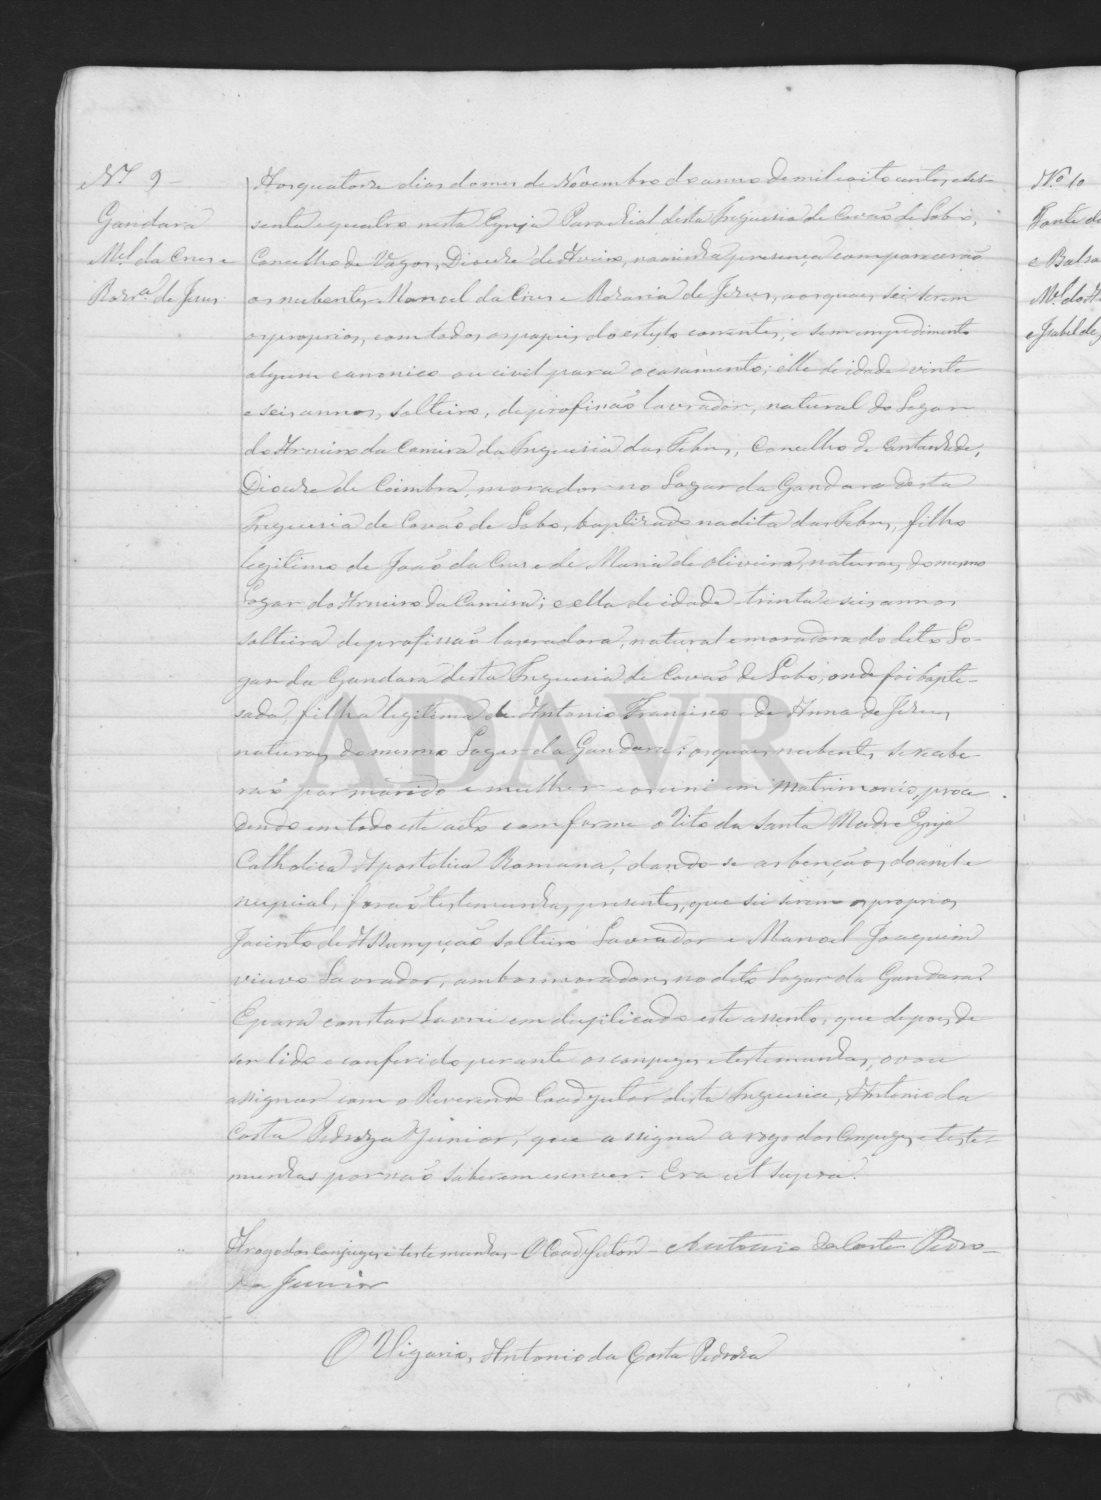 Nº 9
Gandara
Mel da Cruz e
Rozrª de Jesus
Aos quatorze dias do mez de Novembro do anno de mil oito centos e ses-
senta e quatro nesta Egreja Parochial desta Freguesia de Covão de Lobo,
Concelho de Vagos, Diocese de Aveiro, na minha presença compareceráo
os nubentes Manoel da Cruz e Rozaria de Jesus, aos quaes sei serem
os proprios, com todos os papeis do estylo correntes, e sem impedimento
algum canonico ou civil para o casamento; elle de idade vinte
e seis annos, solteiro, de profissão lavrador, natural do Logar
do Arneiro da Comira da Freguesia das Febres, Concelho de Cantanhede,
Diocese de Coimbra, morador no Logar da Gandara desta
Freguesia de Covão de Lobo, baptizado na dita das Febres, filho
legitimo de João da Cruz e de Maria de Oliveira, naturaes do mesmo
Logar do Arneiro da Comira; e ella de idade trinta e seis annos
solteira de profissão lavradora, natural e moradora do dito Lo-
gar da Gandara desta Freguesia de Covão de Lobo, onde foi bapti-
sada, filha legitima de Antonio Francisco e de Anna de Jesus,
naturaes do mesmo Logar da Gandara; os quaes nubentes se recebe-
rão por marido e mulher e os uni em Matrimonio, proce
dendo em todo este acto comforme o Rito da Santa Madre Egreja
Catholica Apostolica Romana, dando-se as bençãos do ambe
nupcial; forão testemunhas presentes, que sei serem os proprios,
Jacinto de Assumpção solteiro Lavrador e Manoel Joaquim
viuvo Lavrador, ambos moradores no dito Logar da Gandara.
E para constar lavrei em duplicado este assento, que depois de
ser lido e conferido perante os conjuges e testemunhas, o vou
assignar com o Reverendo Coadjutor desta Freguesia, Antonio da
Costa Pedroza Junior, que assigna a rogo dos Conjuges e teste-
munhas por não saberem escrever. Era ut supra.
A rogo dos Conjuges e testemunhas - O Coadjutor - Antonio da Costa Pedro-
za Junior
O Vigario, Antonio da Costa Pedroza
Nº 10
Fonte do
e Balsa
Mel do
e Isabel de
ADAVR